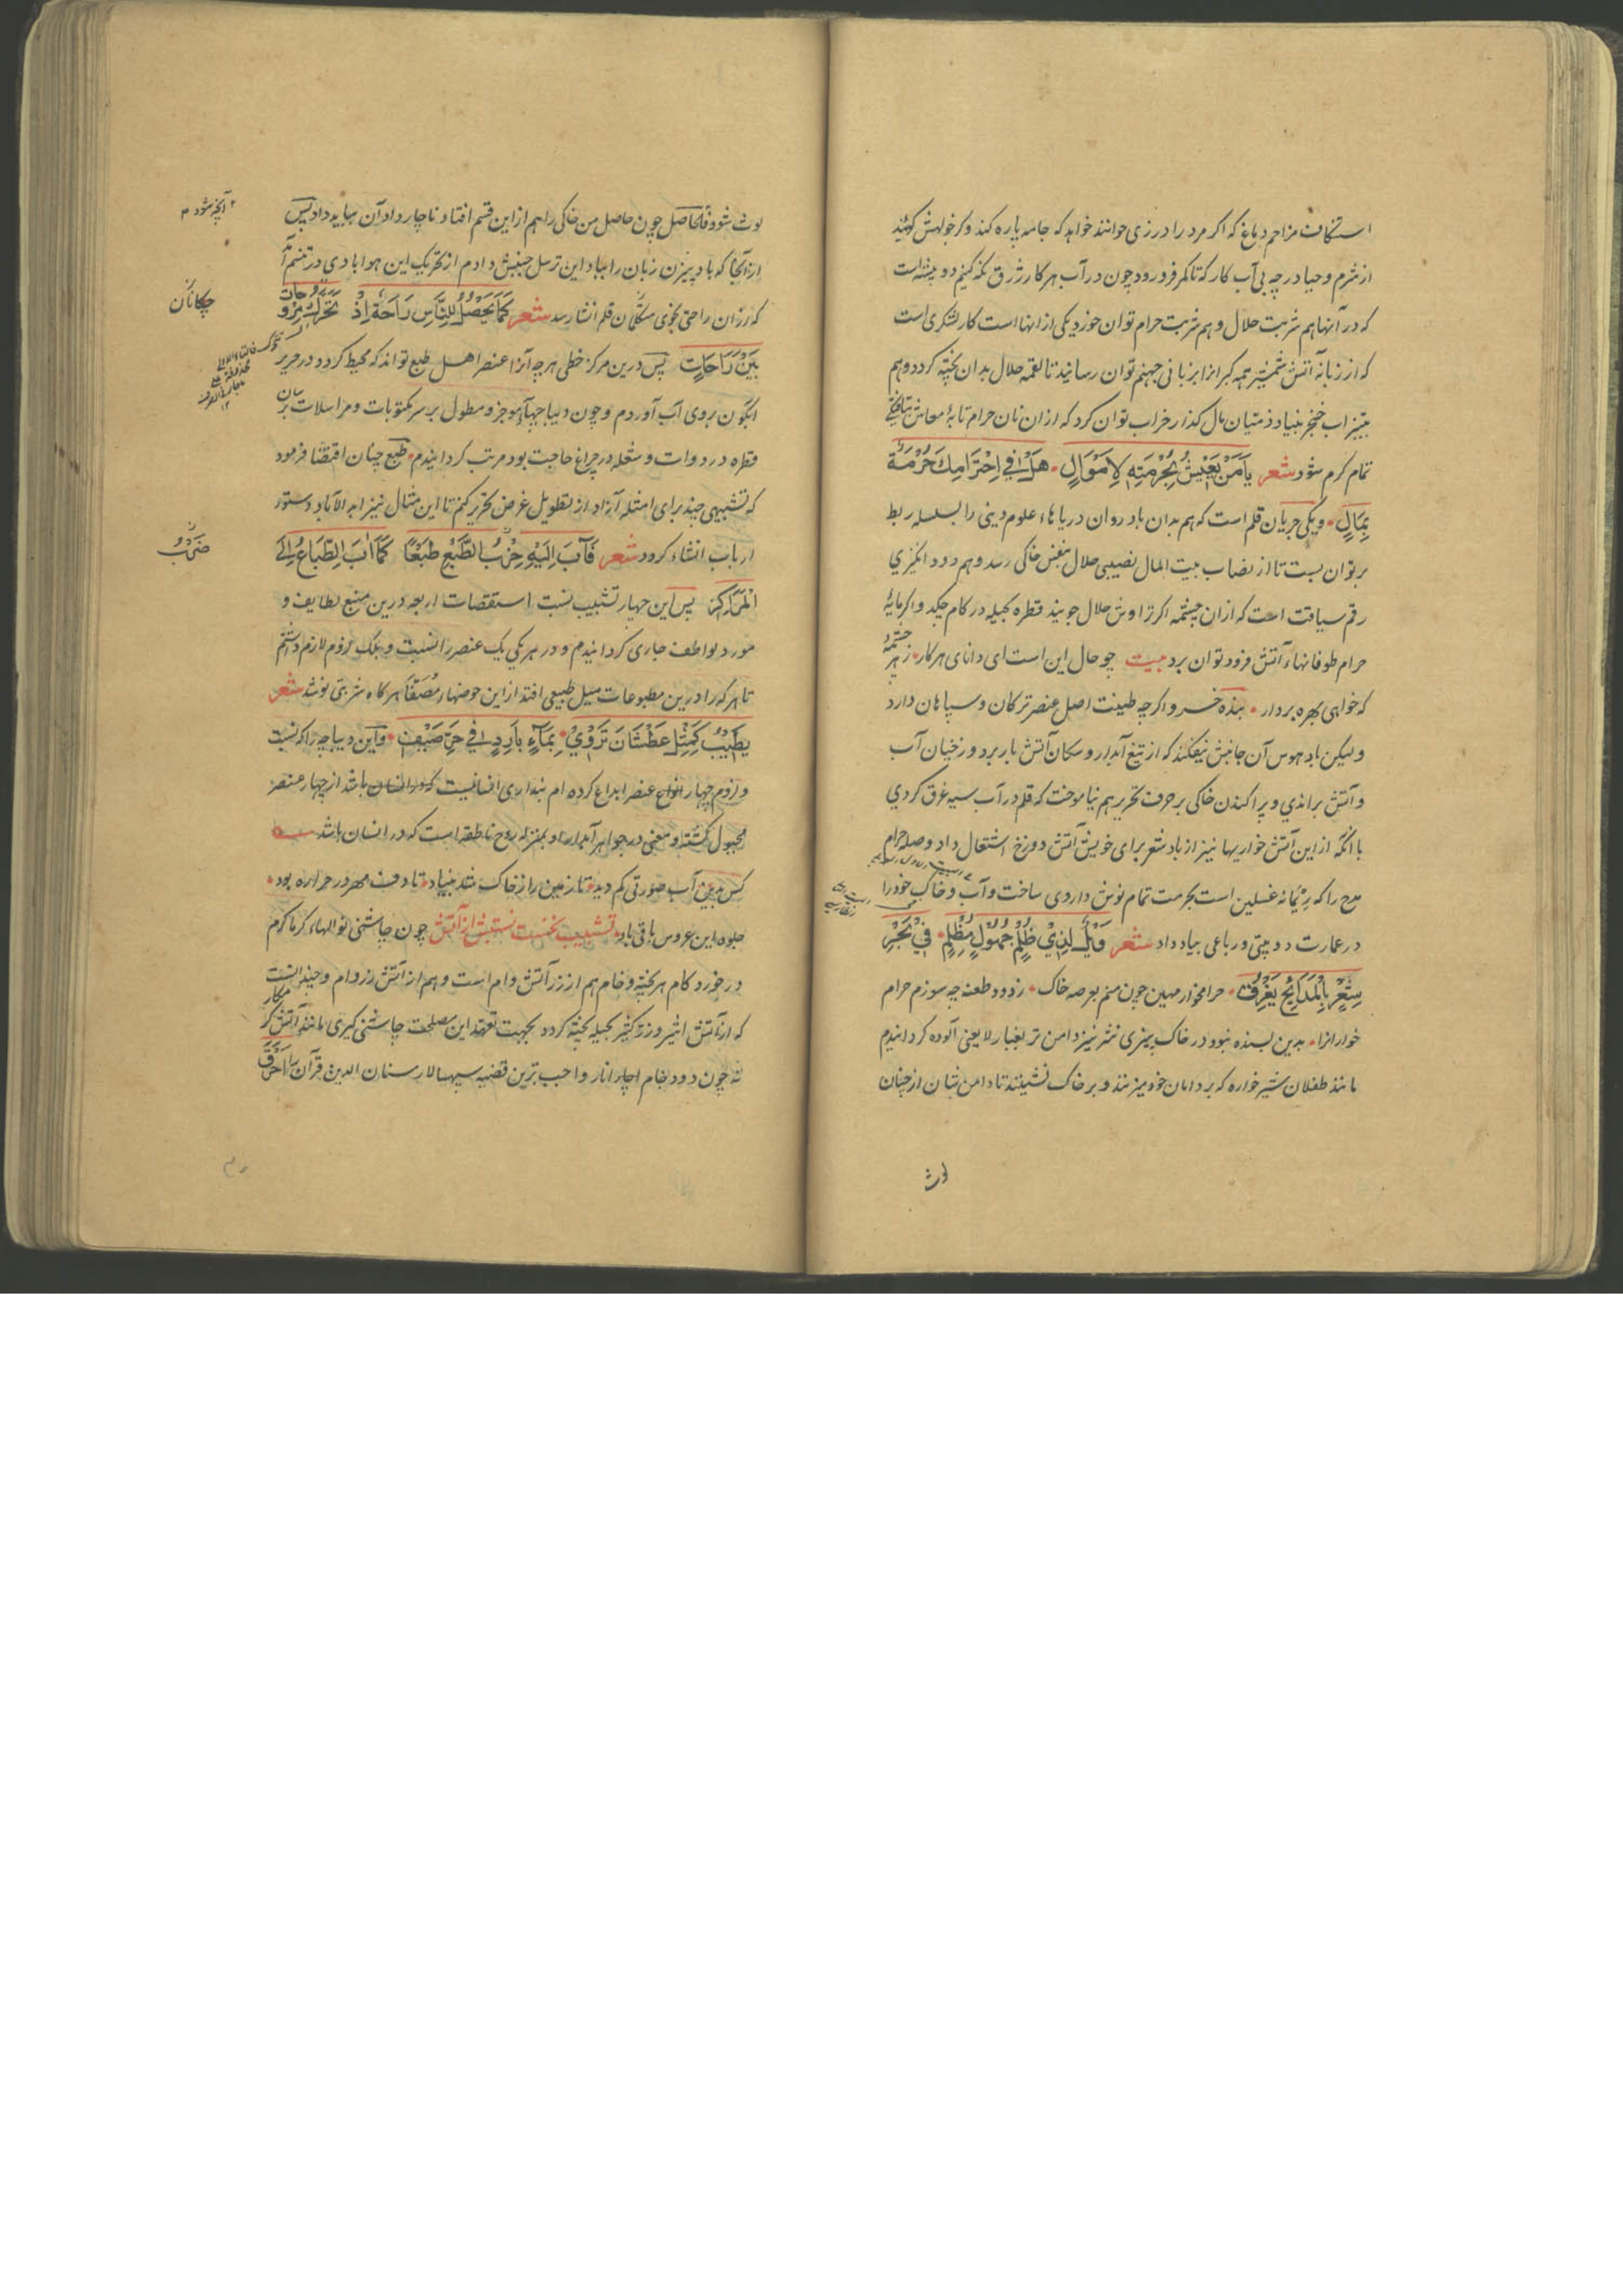 استنکاف مزاحم دماغ که اکر مرد را درزی خوانند خواهد که جامه پاره کند وکر خولهش کویند
از شرم وحیا در چه بی آب کار که تا کمر فرو رود چون در آب هر کار ژرق نکه کنیم دو پیشه است
که در آنها هم شربت حلال و هم شربت حرام توان خورد یکی از انها است کار لشکری است
که از زبانهٔ آتش شمشیر همه کبرانرا بزبانی جهنم توان رسانید تا لقمه حلال بدان پخته کردد و هم
بتیزاب خنجر بنیاد ذمتیان مال کذار خراب توان کرد که از ان نان حرام تابهٔ معاش تافتن
تمام کرم شود شعر یا مَنْ یَعِیْشُ بِحُرْمَتِهِ لِاَمْوَالٍ هَلْ فِي اِحْتِرَامِكَ حُرْمَةٌ
بِمَالٍ ویکی جریان قلم است که هم بدان باد روان دریاهاء علوم دینی را بسلسله ربط
بر توان بست تا از نصاب بیت المال نصیبی حلال بنفس خاکی رسد و هم دود انکیزی
رقم سیاقت است که از ان چشمه اکر تراوش حلال جویند قطره بحیله در کام چکد واکر مایهٔ
حرام طوفانهاء آتش فرود توان برد بیت چو حال این است ای دانای هر کار ز هر چشمهٔ
که خواهی بهره بردار بنده خسرو اکرچه طینت اصل عنصر ترکان و سپاهان دارد
ولیکن باد هوس آن جانبش نیفکند که از تیغ آبدار و سکان آتش بار برد و زخیان آب
و آتش براندی و پراکندن خاکی بر حرف تحریر هم نیاموخت که قلم در آب سیه غرق کردی
با آنکه از این آتش خواریها نیز از باد شعر برای خویش آتش دوزخ اشتعال داد وصله حرام
مدح را که ریمانه غسلین است بحرمت تمام نوش داروی ساخت و آب و خاک خود را
در عمارت دو بیتی و رباعی بباد داد شعر وَیْلٌ لِذِيْ ظُلْمٍ جَهُوْلٍ مُظْلِمٍ فِيْ بَحْرِ
شِعْرٍ بِالْمَدَایِحِ یَغْرِقُ حرامخوار مهین چون منم بعرصه خاک ز دود طعنه چه سوزم حرام
خوارانرا بدین بسنده نبود در خاک بیزی نثر نیز دامن تر بغبار لا یعنی آلوده کردانیدم
مانند طفلان شیر خواره که بر دامان خود میزند و بر خاک نشینند تا دامن شان از چنان
لوث
لوث شود فالحاصل چون حاصل من خاکی را هم از این قسم افتاد ناچار داد آن بباید داد پس
از آنجا که باد بیزن زبان را بباد این ترسل جنبش دادم از تحریک این هوا بادی در تنسم آمد
۲ آنچه شود ۳
که از ان راحتی بخوی متکلمان قلم انشا رسد شعر کَمَا یَحْصُلُ لِلنَّاسِ رَاحَةٌ اِذْ تَحَرَّكَ مِرْوَحَاتٌ
چکانان
بَیْنَ رَاحَاتٍ پس درین مرکز خطی هر چه آنرا عنصر اهل طبع تواند که محیط کردد در حریر
آبکون بروی آب آوردم و چون دیباجهاء موجز و مطول بر سر مکتوبات و مراسلات بسان
قطره در دوات و شعله در چراغ حاجت بود مرتب کردانیدم طبع چنان اقتضا فرمود
که تشبیهی چند برای امثله آزاد از تطویل غرض تحریر کنم تا این مثال نیز ابد الآباد دستور
ارباب انشاء کردد شعر فَآبَ اِلَیْهِ حِزْبُ الطَّبْعِ طَبْعًا کَمَا آبَ الطِّبَاعُ اِلَی
الْمَرَاکِزِ پس این چهار تشبیب نسبت استقصات اربعه درین منبع لطایف و
مورد عواطف جاری کردانیدم و در هر یکی یک عنصر را نسبت و بلک لزوم لازم داشتم
تا هر که را درین مطبوعات میل طبیعی افتد از این حوضهاء مُصَفّا هر کاه شربتی نوشد شعر
یَطِیْبُ کَمِثْلِ عَطْشَانَ تَرَوّيْ بِمَآءٍ بَارِدٍ فِي حَرِّ صَیْفٍ و این دیباجه را که نسبت
و لزوم چهار انواع عنصر ابداع کرده ام بنداری انسانیست که در انسان باشد از چهار عنصر
مجبول کشته و معنی در جواهر آبدار او بمنزله روح ناطقه است که در انسان باشد
کس بدین آب صورتی کم دید تا زمین را ز خاک شد بنیاد تا دف مهر در حراره بود
جلوه این عروس باقی باد تشبیب نخست نسبتش از آتش چون چاشنی نوالهاء کرما کرم
در خورد کام هر پخته و خام هم از زر آتش وام است و هم از آتش زر وام و چند انست
که از آتش اثیر و زر کثیر بحیله پخته کردد بجهت تعهد این مصلحت چاشنی کیری مانند آتش کر
نه چون دود بخام اجاء انار واجب ترین قضیه سپهسالار سنان الدین قرآن را